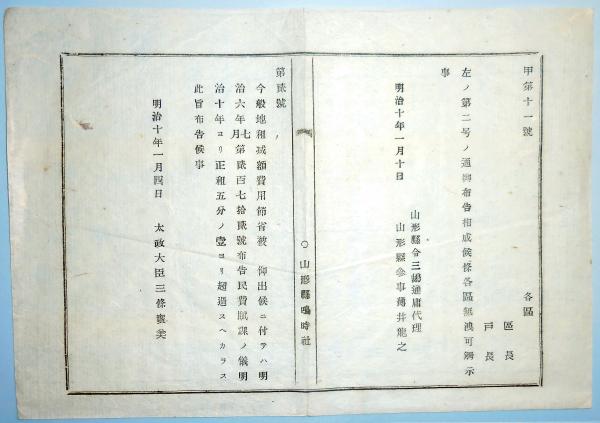 甲第十一號
各區
區長
戸長
左ノ第二号ノ通御布告相成候條各區無洩可觸示
事
明治十年一月十日
山形縣令三島通庸代理
山形縣參事薄井龍之
○山形縣鳴時社
第貳號
今般地租减額費用節省被 仰出候ニ付テハ明
治六年七月第貳百七拾貳號布告民費賦課ノ儀明
治十年ヨリ正租五分ノ壹ヨリ超過スヘカラス
此旨布告候事
明治十年一月四日
太政大臣三條實美